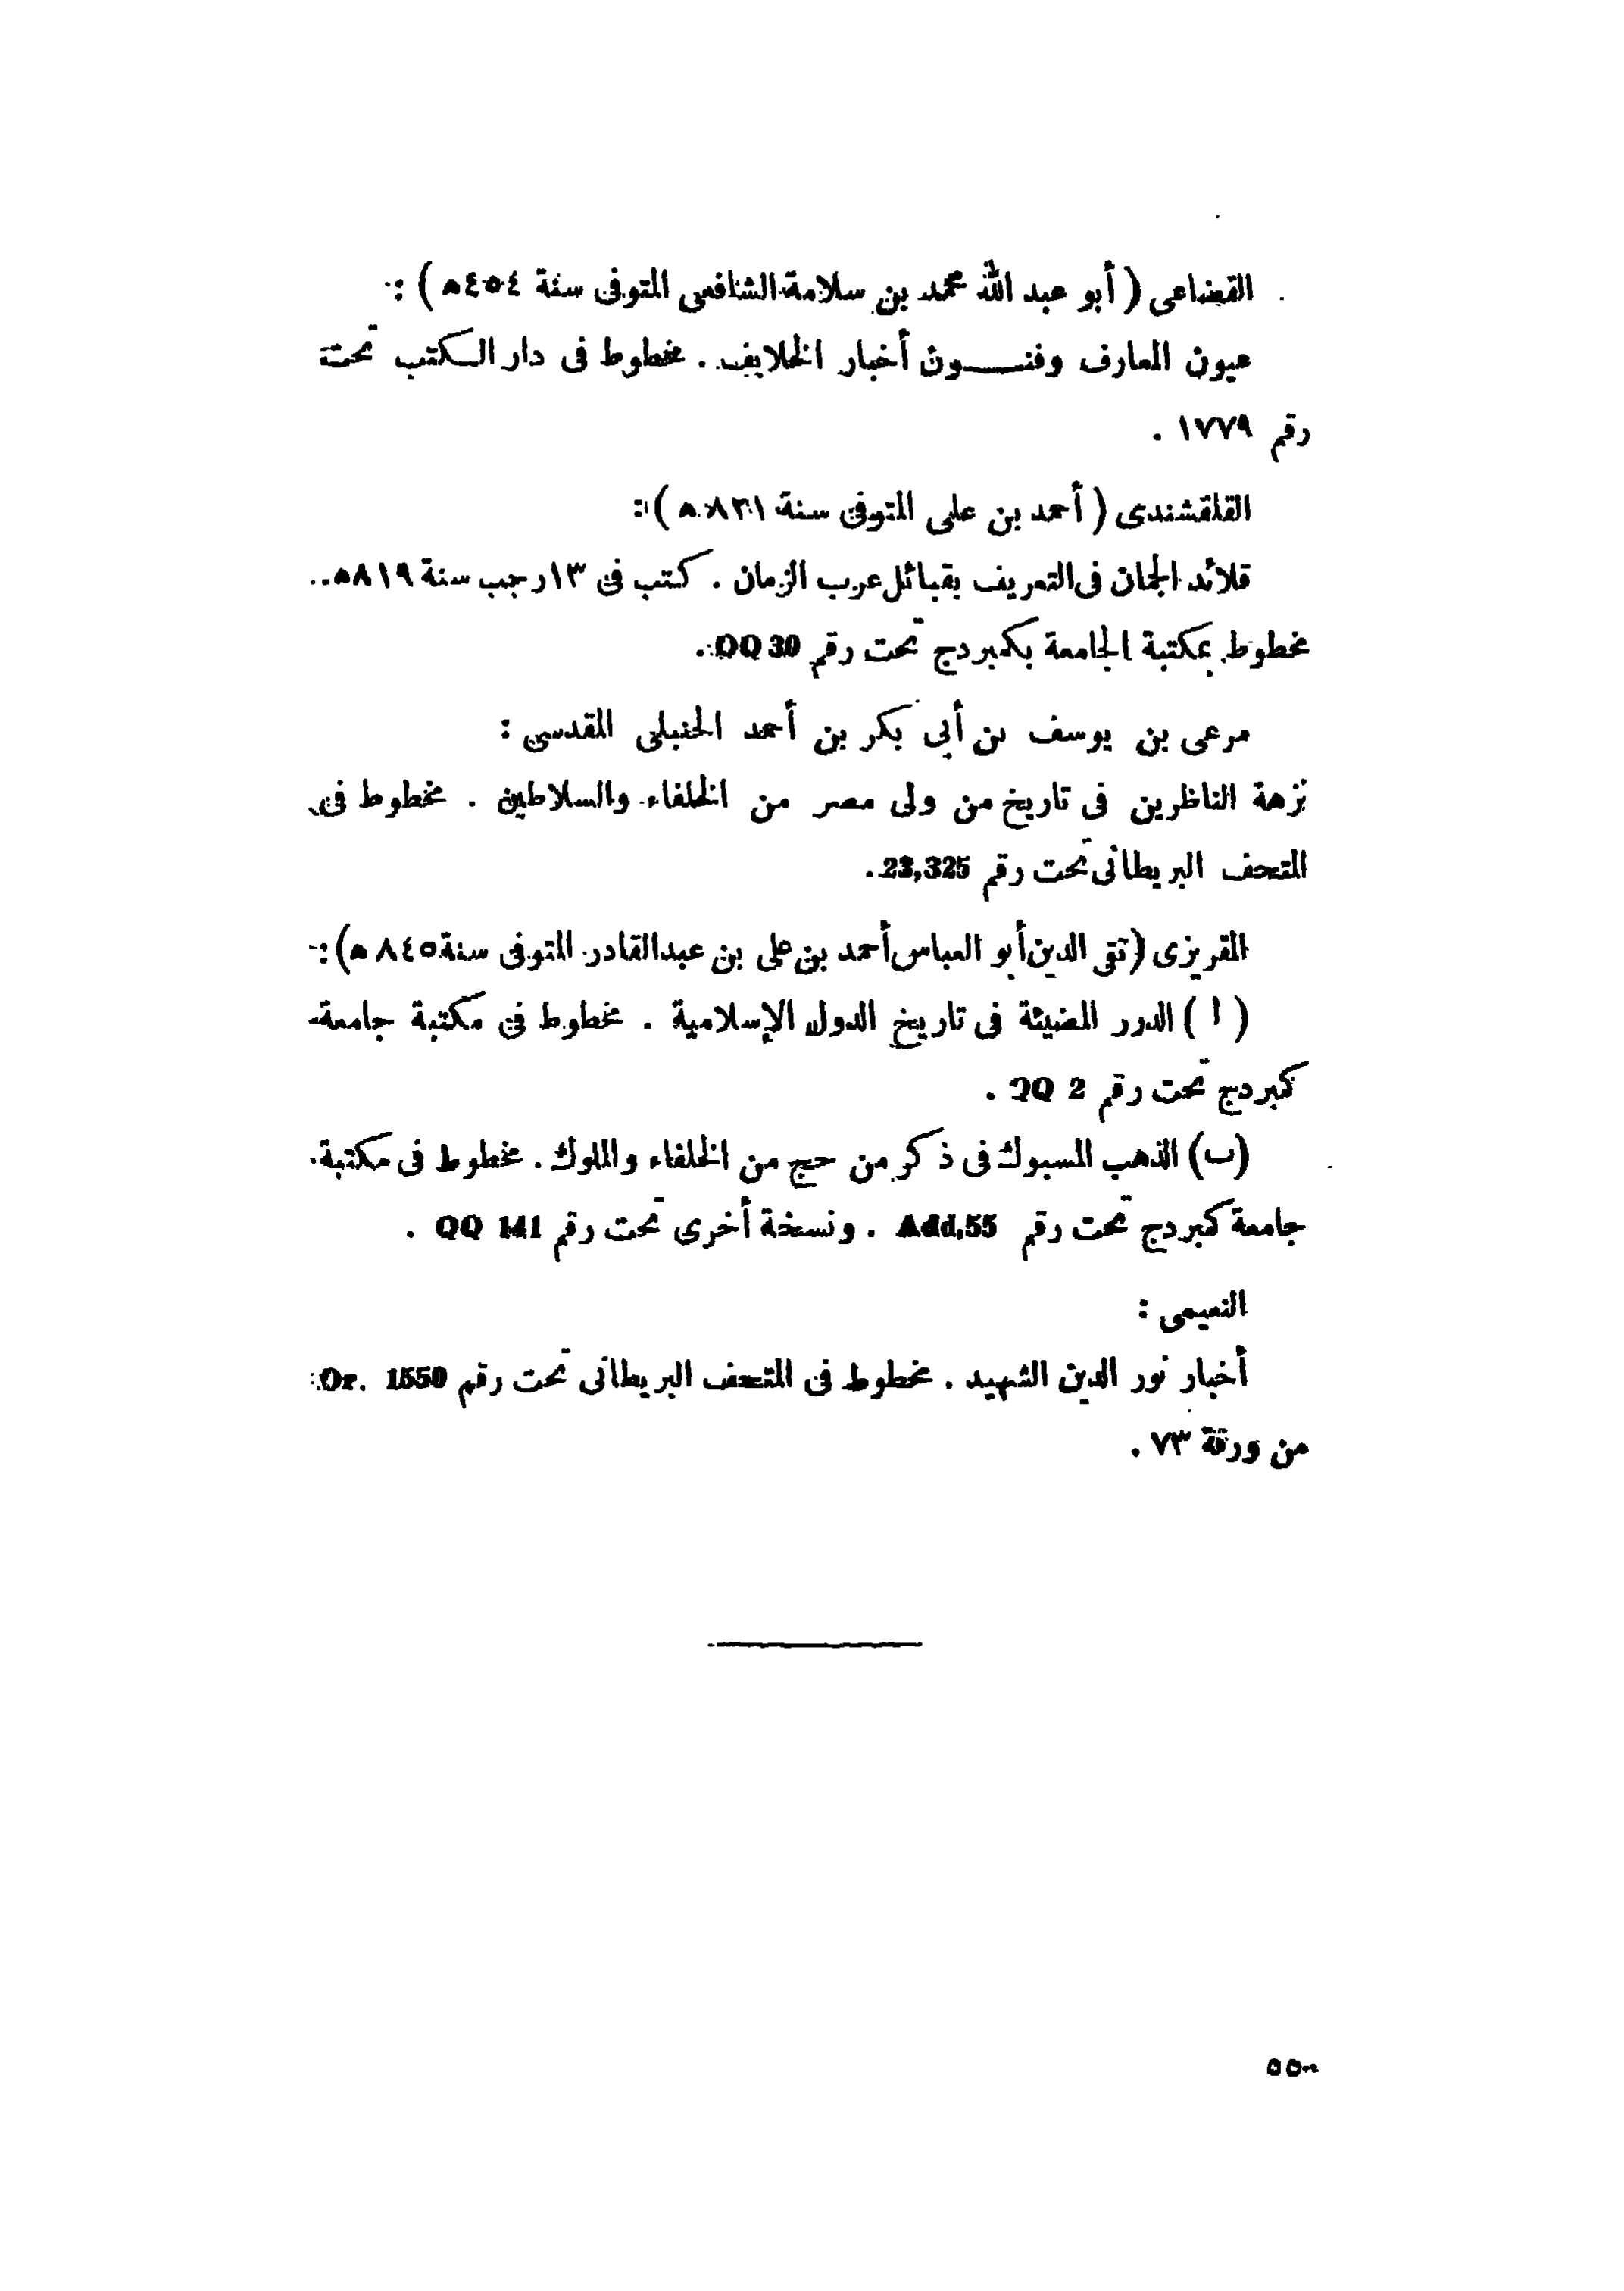 القضاعى ( أبو عبد الله محمد بن سلامة الشافعى المتوفى سنة ٤٥٤ ه ) :
عيون المعارف وفنـــون أخبار الخلايف . مخطوط فى دار الكتب تحت
رقم ١٧٧٩ .
القلقشندى ( أحمد بن على المتوفى سنة ٨٢١ ه ) :
قلائد الجمان فى التعريف بقبائل عرب الزمان . كتب فى ١٣ رجب سنة ٨١٩ ه .
مخطوط بمكتبة الجامعة بكمبردج تحت رقم QQ 30 .
مرعى بن يوسف بن أبى بكر بن أحمد الحنبلى المقدسى :
نزهة الناظرين فى تاريخ من ولى مصر من الخلفاء والسلاطين . مخطوط فى
المتحف البريطانى تحت رقم 23,325 .
المقريزى ( تقى الدين أبو العباس أحمد بن على بن عبد القادر المتوفى سنة ٨٤٥ ه ) :
( ا ) الدرر المضيئة فى تاريخ الدول الإسلامية . مخطوط فى مكتبة جامعة
كمبردج تحت رقم QQ 2 .
(ب) الذهب المسبوك فى ذكر من حج من الخلفاء والملوك . مخطوط فى مكتبة
جامعة كمبردج تحت رقم Add,55 . ونسخة أخرى تحت رقم QQ 141 .
النعيمى :
أخبار نور الدين الشهيد . مخطوط فى المتحف البريطانى تحت رقم Or. 1550
من ورقة ٧٣ .